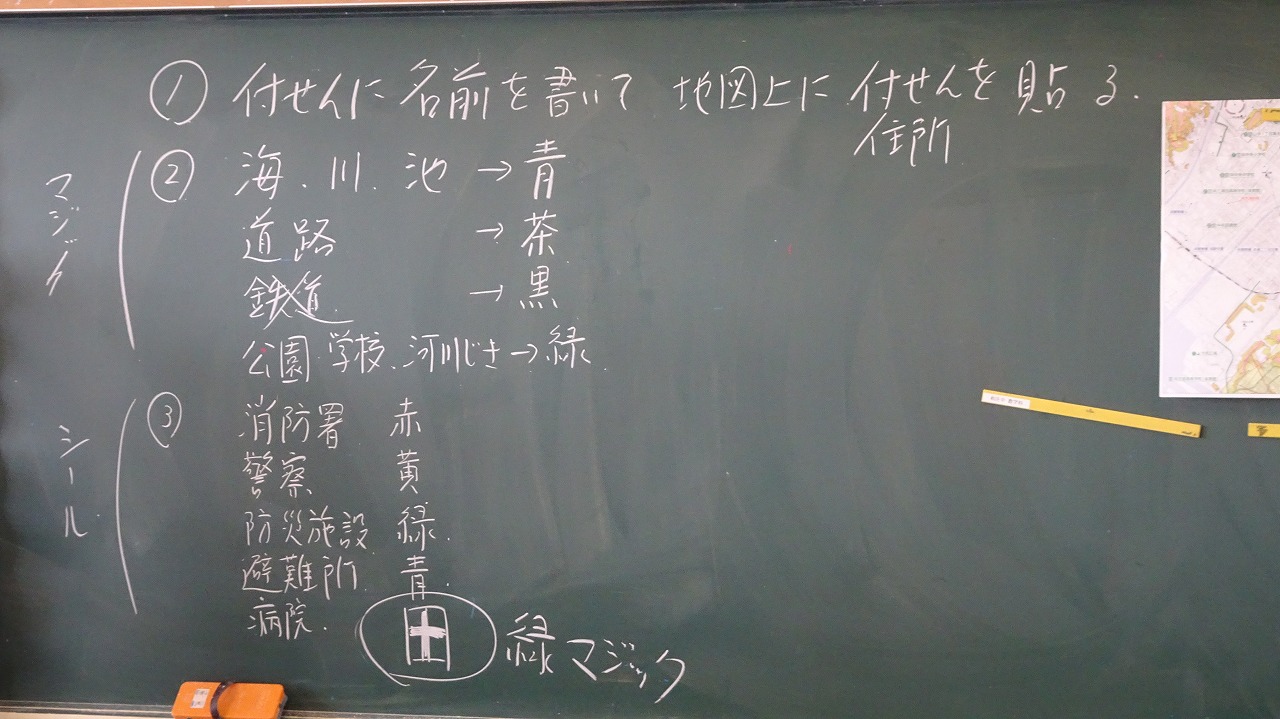 ① 付せんに名前を書いて 地図上に 付せんを貼る.
住所
マジック
② 海、川、池 → 青
道路 → 茶
鉄道 → 黒
公園 学校、河川じき → 緑
シール
③ 消防署 赤
警察 黄
防災施設 緑
避難所 青
病院.
緑マジック